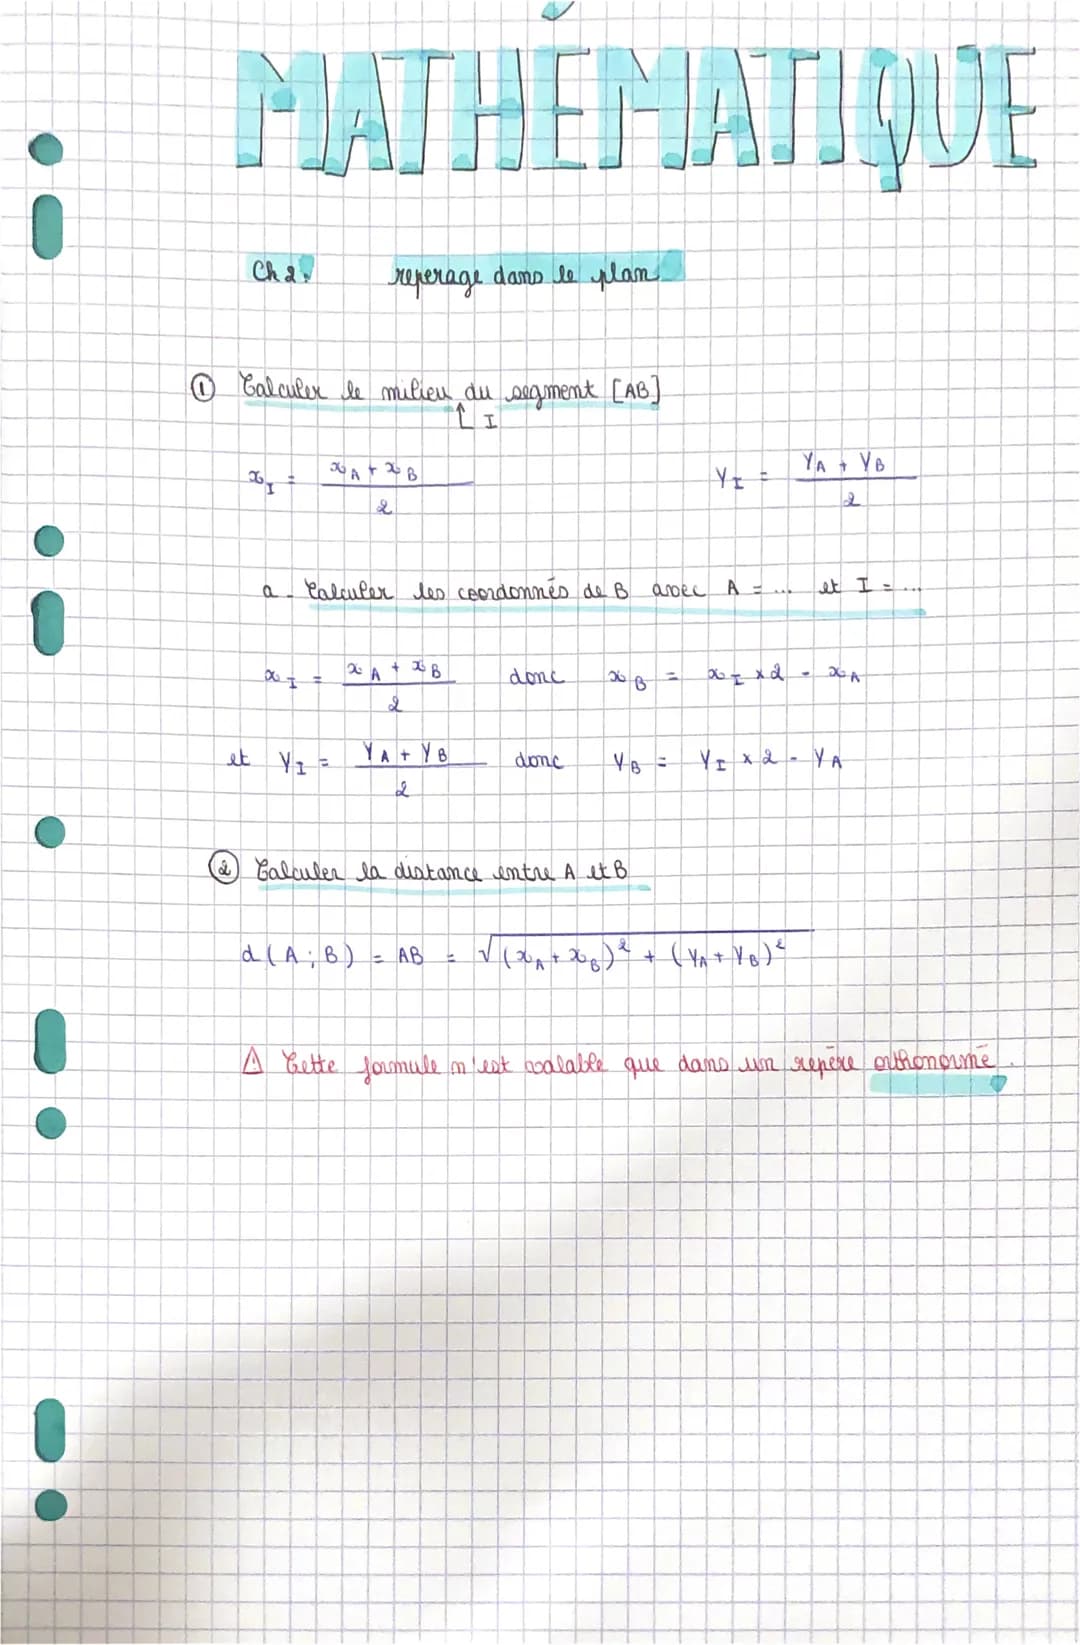 MATHÉMATIQUE
Ch 2: reperage dans le plan
① Calculer le milieu du segment [AB]
↑ I
x_I = (x_A + x_B)/2    y_I = (y_A + y_B)/2
a - Calculer les coordonnés de B avec A = ... et I = ...
x_I = (x_A + x_B)/2 donc x_B = x_I × 2 - x_A
et y_I = (y_A + y_B)/2 donc y_B = y_I × 2 - y_A
② Calculer la distance entre A et B
d(A ; B) = AB = √((x_A + x_B)² + (y_A + y_B)²)
⚠ Cette formule n'est valable que dans un repère orthonormé.